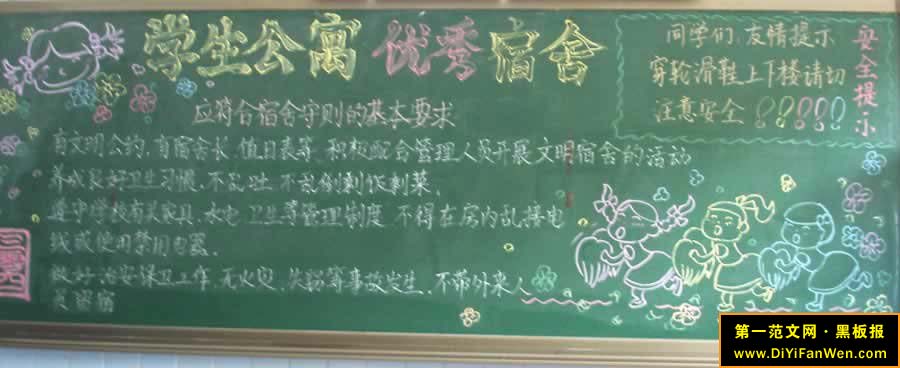 学生公寓 优秀宿舍
应符合宿舍守则的基本要求
有文明公约，有宿舍长，值日表等，积极配合管理人员开展文明宿舍的活动
养成良好卫生习惯，不乱吐，不乱倒剩饭剩菜。
遵守学校有关家具、水电、卫生等管理制度，不得在房内乱接电
线或使用禁用电器。
做好治安保卫工作，无火灾、失窃等事故发生，不带外来人
员留宿
同学们，友情提示
穿轮滑鞋上下楼请切
注意安全！！！！！
安全提示
第一范文网·黑板报
www.DiYiFanWen.com